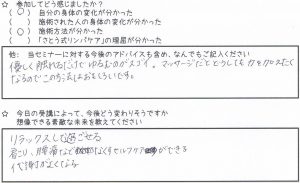 ☆ 参加してどう感じましたか？
（○） 自分の身体の変化が分かった
（ ） 施術された人の身体の変化が分かった
（○） 施術方法が分かった
（ ） 「さとう式リンパケア」の理屈が分かった
他: 当セミナーに対する今後のアドバイスも含め、なんでもご記入ください
優しく触れるだけでゆるむのがスゴイ。マッサージだとどうしても力を入れたく
なるのでこの方法はおもしろいです。
☆ 今日の受講によって、今後どう変わりそうですか
想像できる素敵な未来を教えてください
リラックスして過ごせる
肩こり、腰痛など なくセルフケア ができる
代謝がよくなる